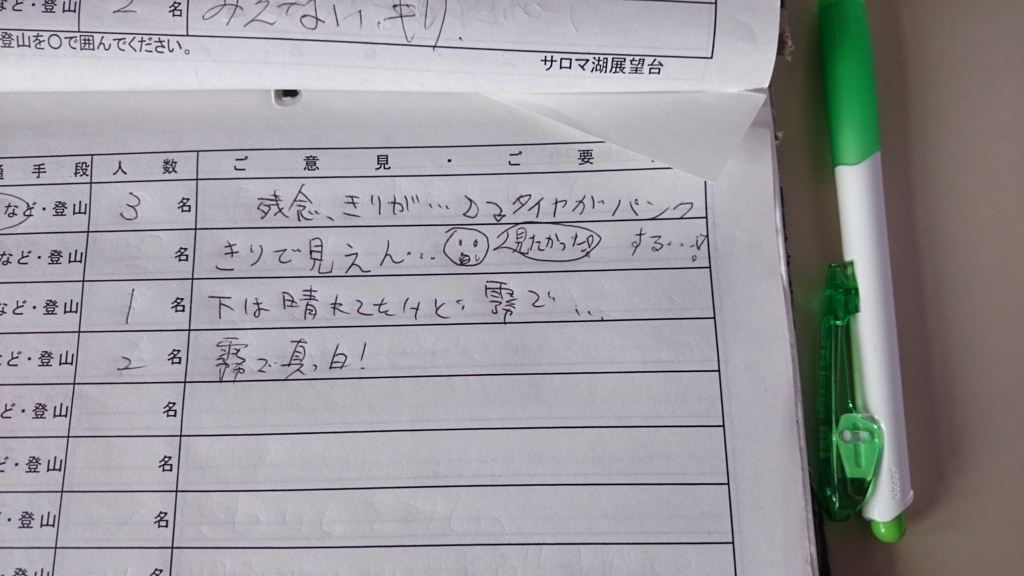 など・登山 2 名 みえない、きり.
登山を○で囲んでください。
サロマ湖展望台
通手段 人数 ご意見・ご要
など・登山 3 名 残念、きりが… タイヤがパンク
など・登山 名 きりで見えん… 見たかった する…
など・登山 1 名 下は晴れてたけど 霧で…
ど・登山 2 名 霧で真っ白!
ど・登山 名
ど・登山 名
・登山 名
・登山 名